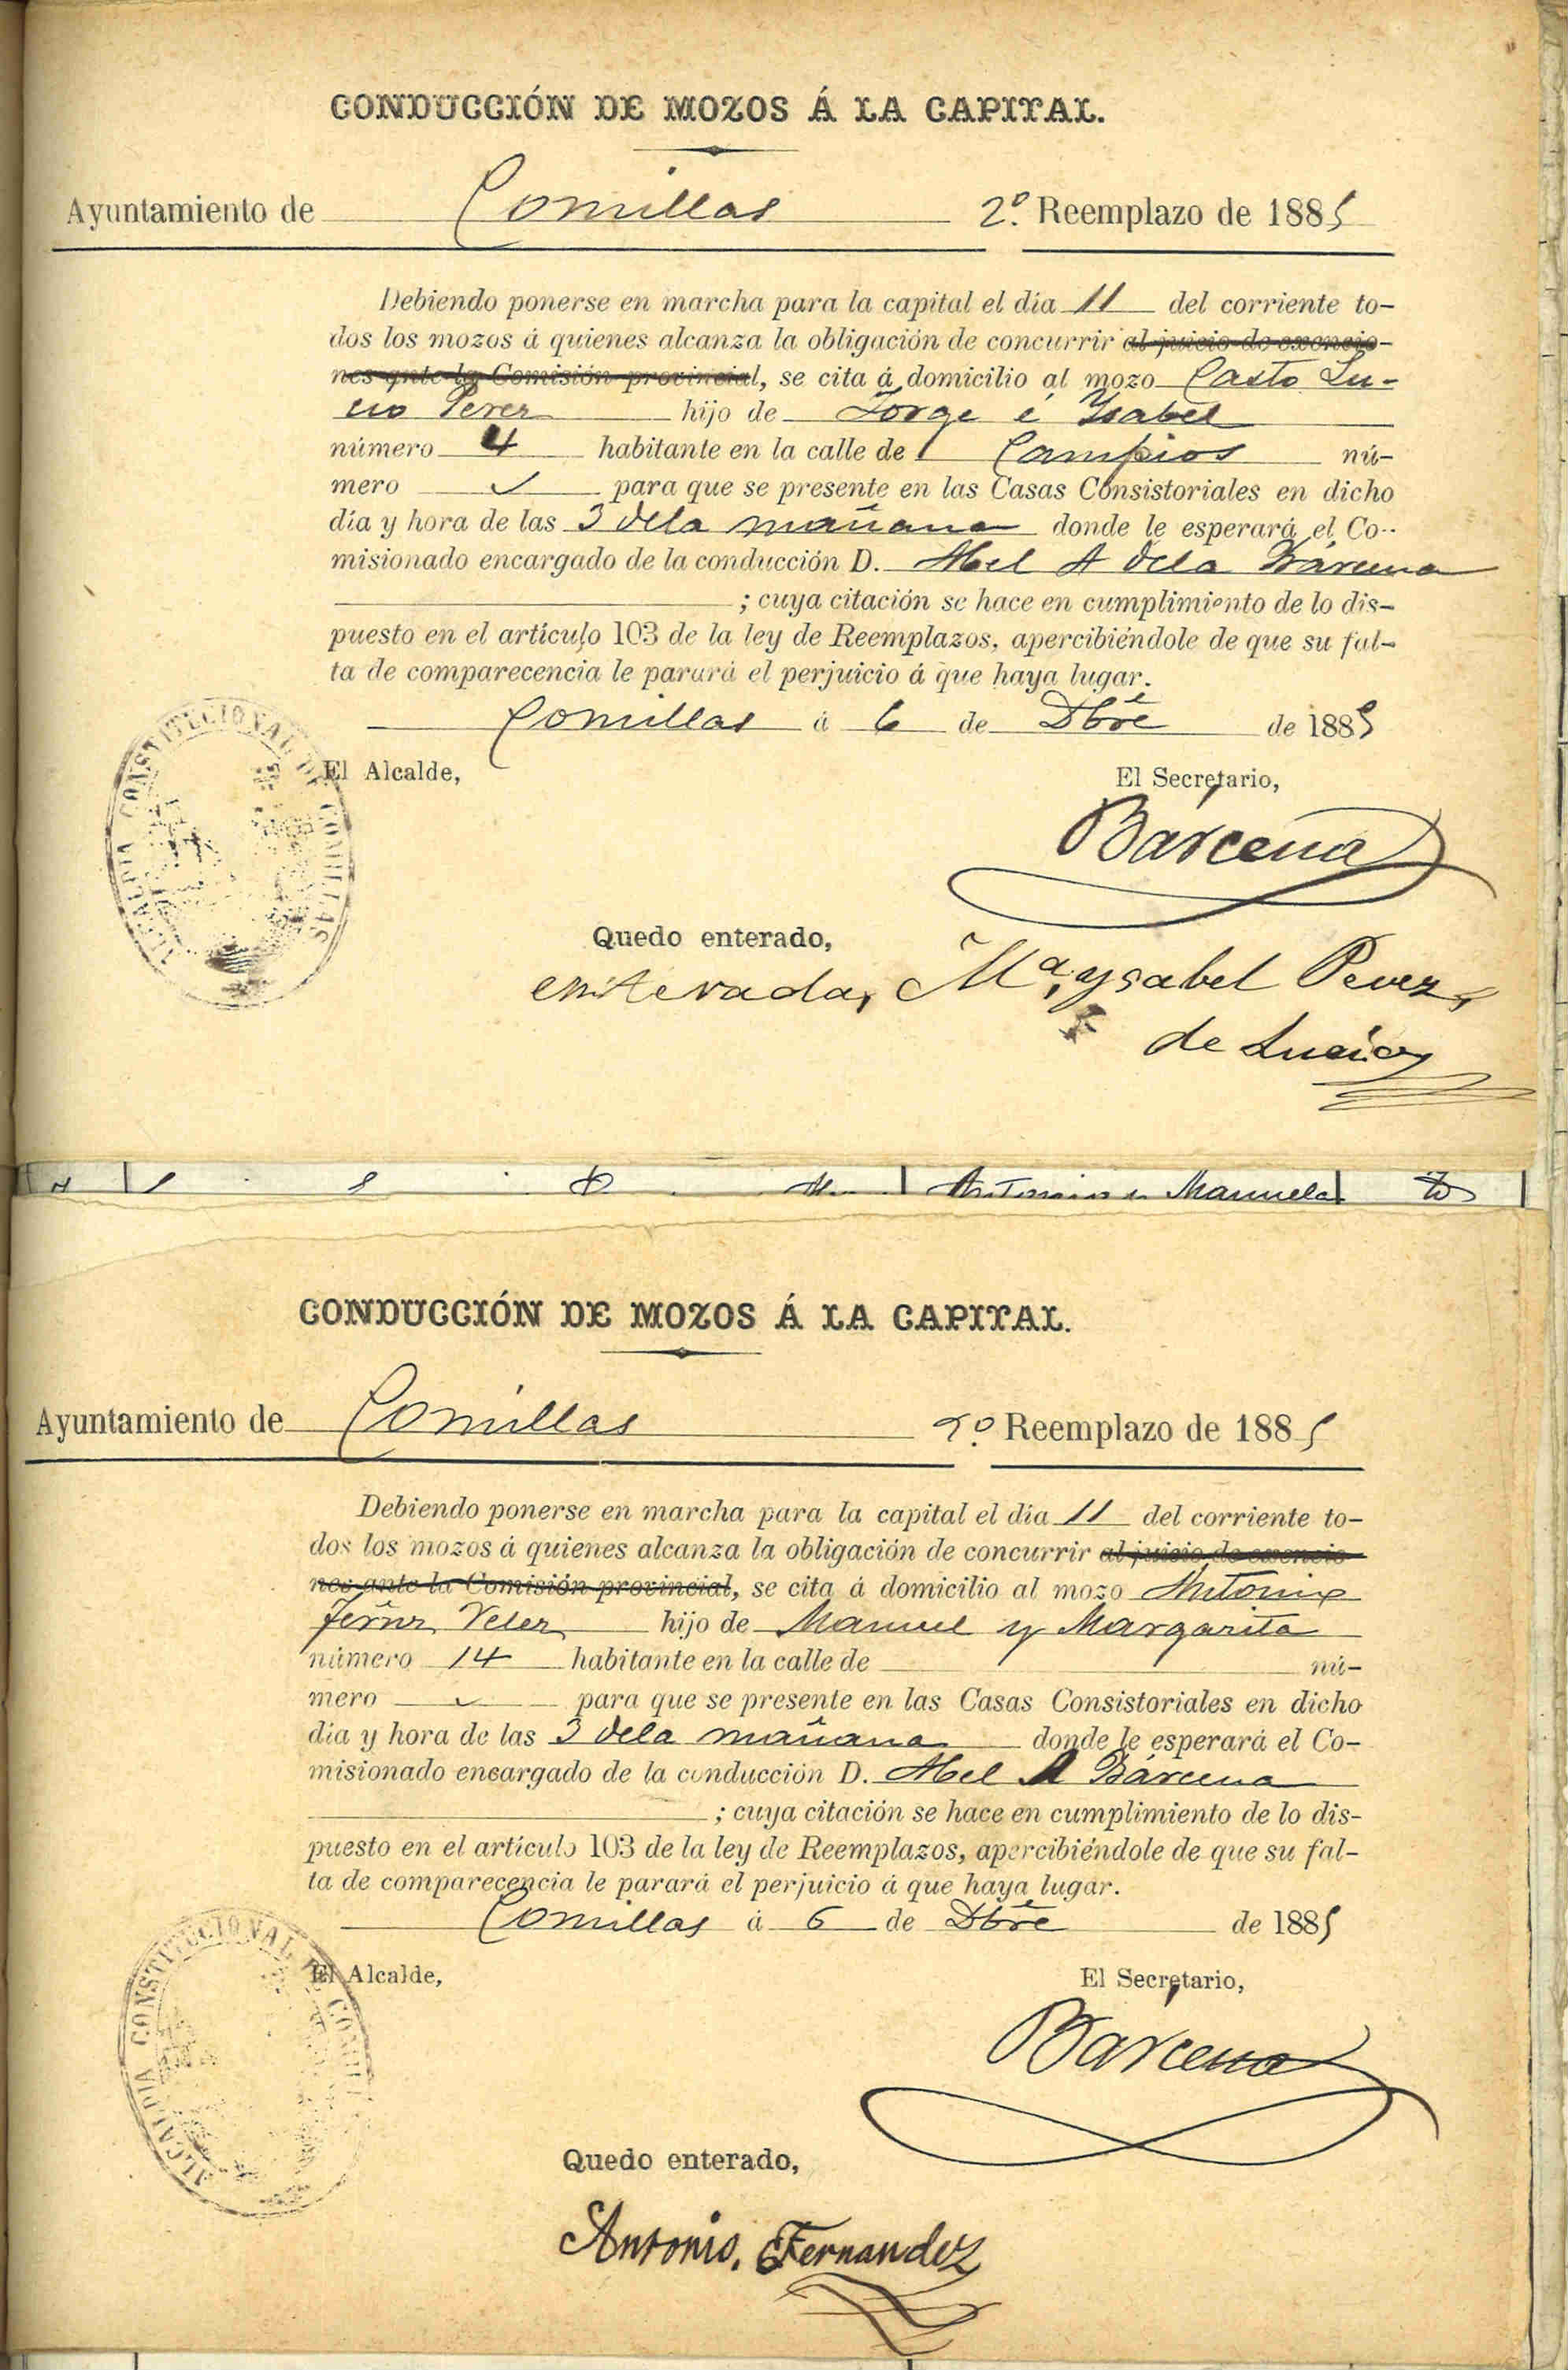 CONDUCCIÓN DE MOZOS Á LA CAPITAL.
Ayuntamiento de Comillas 2º. Reemplazo de 1885
Debiendo ponerse en marcha para la capital el día 11 del corriente to-
dos los mozos á quienes alcanza la obligación de concurrir al juicio de exencio-
nes ante la Comisión provincial, se cita á domicilio al mozo Casto Lu-
cio Perez hijo de Jorge é Ysabel
número 4 habitante en la calle de Campios nú-
mero para que se presente en las Casas Consistoriales en dicho
día y hora de las 3 dela mañana donde le esperará el Co-
misionado encargado de la conducción D. Abel A dela Bárcena
; cuya citación se hace en cumplimiento de lo dis-
puesto en el artículo 103 de la ley de Reemplazos, apercibiéndole de que su fal-
ta de comparecencia le parará el perjuicio á que haya lugar.
Comillas á 6 de Dbre de 1885
El Alcalde, El Secretario,
ALCALDIA CONSTITUCIONAL DE COMILLAS
Barcena
Quedo enterado,
enterada, Mª, ysabel Perez,
de Lucio
Antonio Manuela
CONDUCCIÓN DE MOZOS Á LA CAPITAL.
Ayuntamiento de Comillas 2º. Reemplazo de 1885
Debiendo ponerse en marcha para la capital el día 11 del corriente to-
dos los mozos á quienes alcanza la obligación de concurrir al juicio de exencio-
nes ante la Comisión provincial, se cita á domicilio al mozo Antonio
Fernz Velez hijo de Manuel y Margarita
número 14 habitante en la calle de nú-
mero para que se presente en las Casas Consistoriales en dicho
día y hora de las 3 dela mañana donde le esperará el Co-
misionado encargado de la conducción D. Abel A Bárcena
; cuya citación se hace en cumplimiento de lo dis-
puesto en el artículo 103 de la ley de Reemplazos, apercibiéndole de que su fal-
ta de comparecencia le parará el perjuicio á que haya lugar.
Comillas á 6 de Dbre de 1885
El Alcalde, El Secretario,
ALCALDIA CONSTITUCIONAL DE COMILLAS
Barcena
Quedo enterado,
Antonio. Fernandez